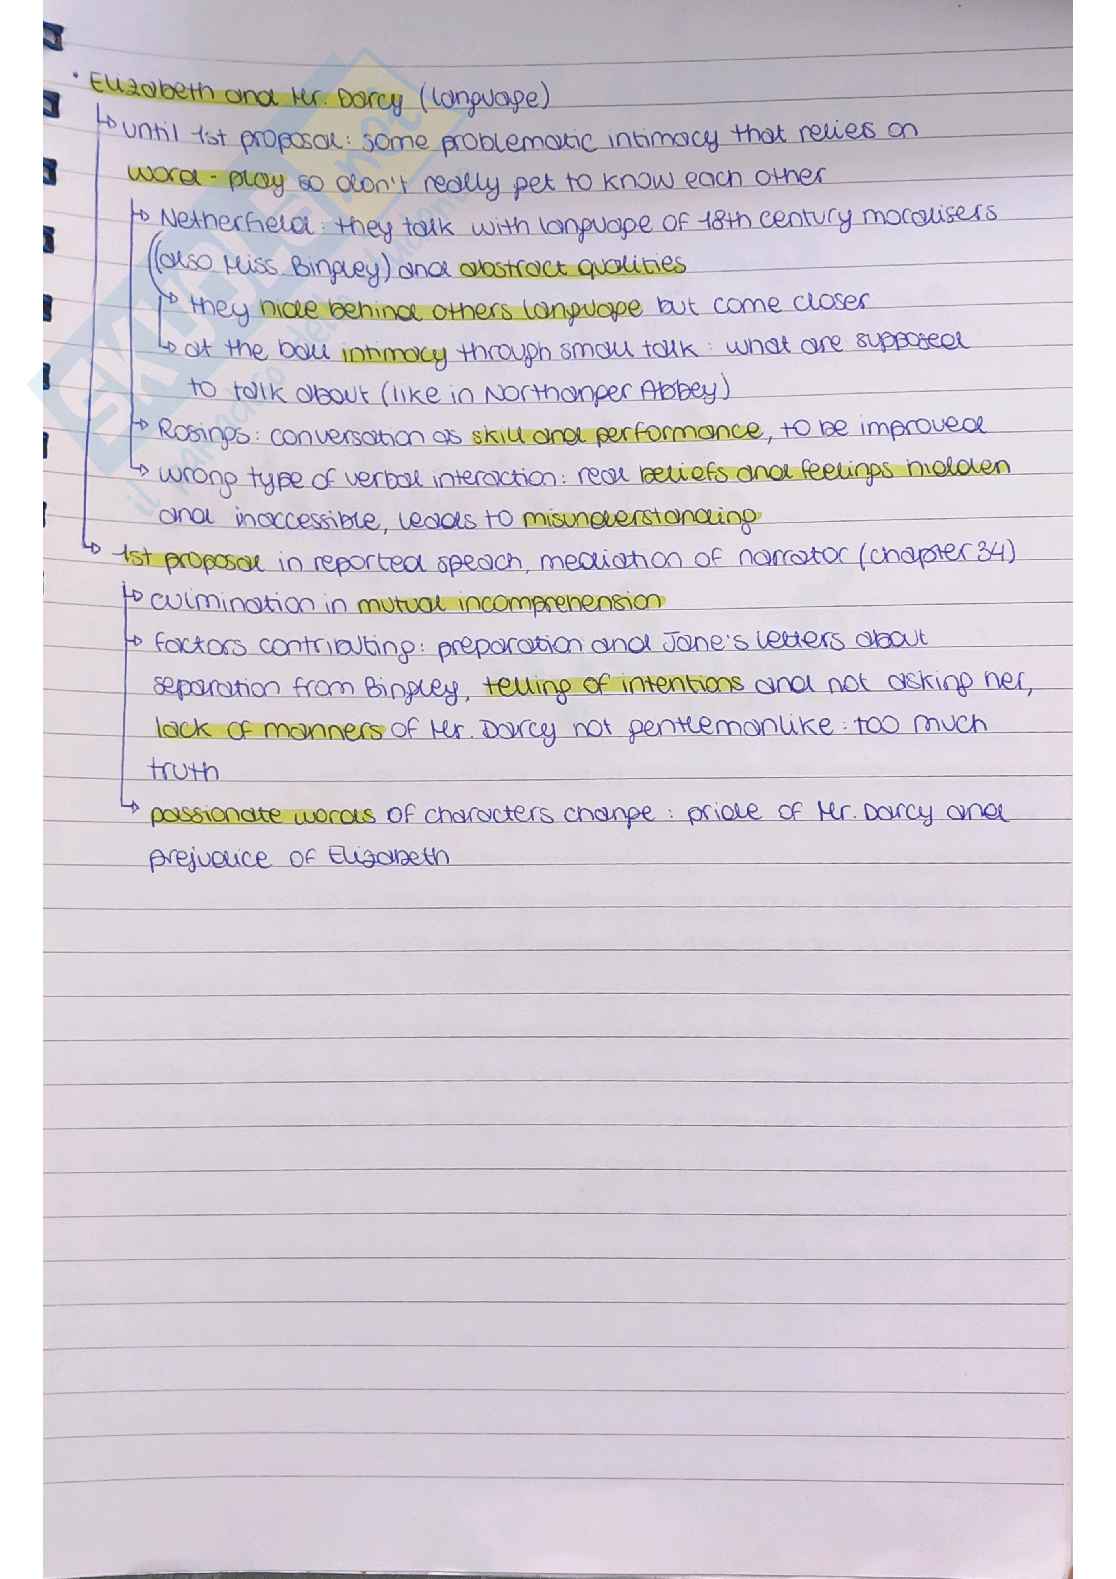 • Elizabeth and Mr. Darcy (language)
↳ until 1st proposal: some problematic intimacy that relies on
word-play so don't really get to know each other
↳ Netherfield: they talk with language of 18th century moralisers
(also Miss Bingley) and abstract qualities
↳ they hide behind others language but come closer
↳ at the ball intimacy through small talk: what are supposed
to talk about (like in Northanger Abbey)
↳ Rosings: conversation as skill and performance, to be improved
↳ wrong type of verbal interaction: real beliefs and feelings hidden
and inaccessible, leads to misunderstanding
↳ 1st proposal in reported speach, mediation of narrator (chapter 34)
↳ culmination in mutual incomprehension
↳ factors contributing: preparation and Jane's letters about
separation from Bingley, telling of intentions and not asking her,
lack of manners of Mr. Darcy not gentlemanlike: too much
truth
↳ passionate words of characters change: pride of Mr. Darcy and
prejudice of Elizabeth
SKUOLA.net